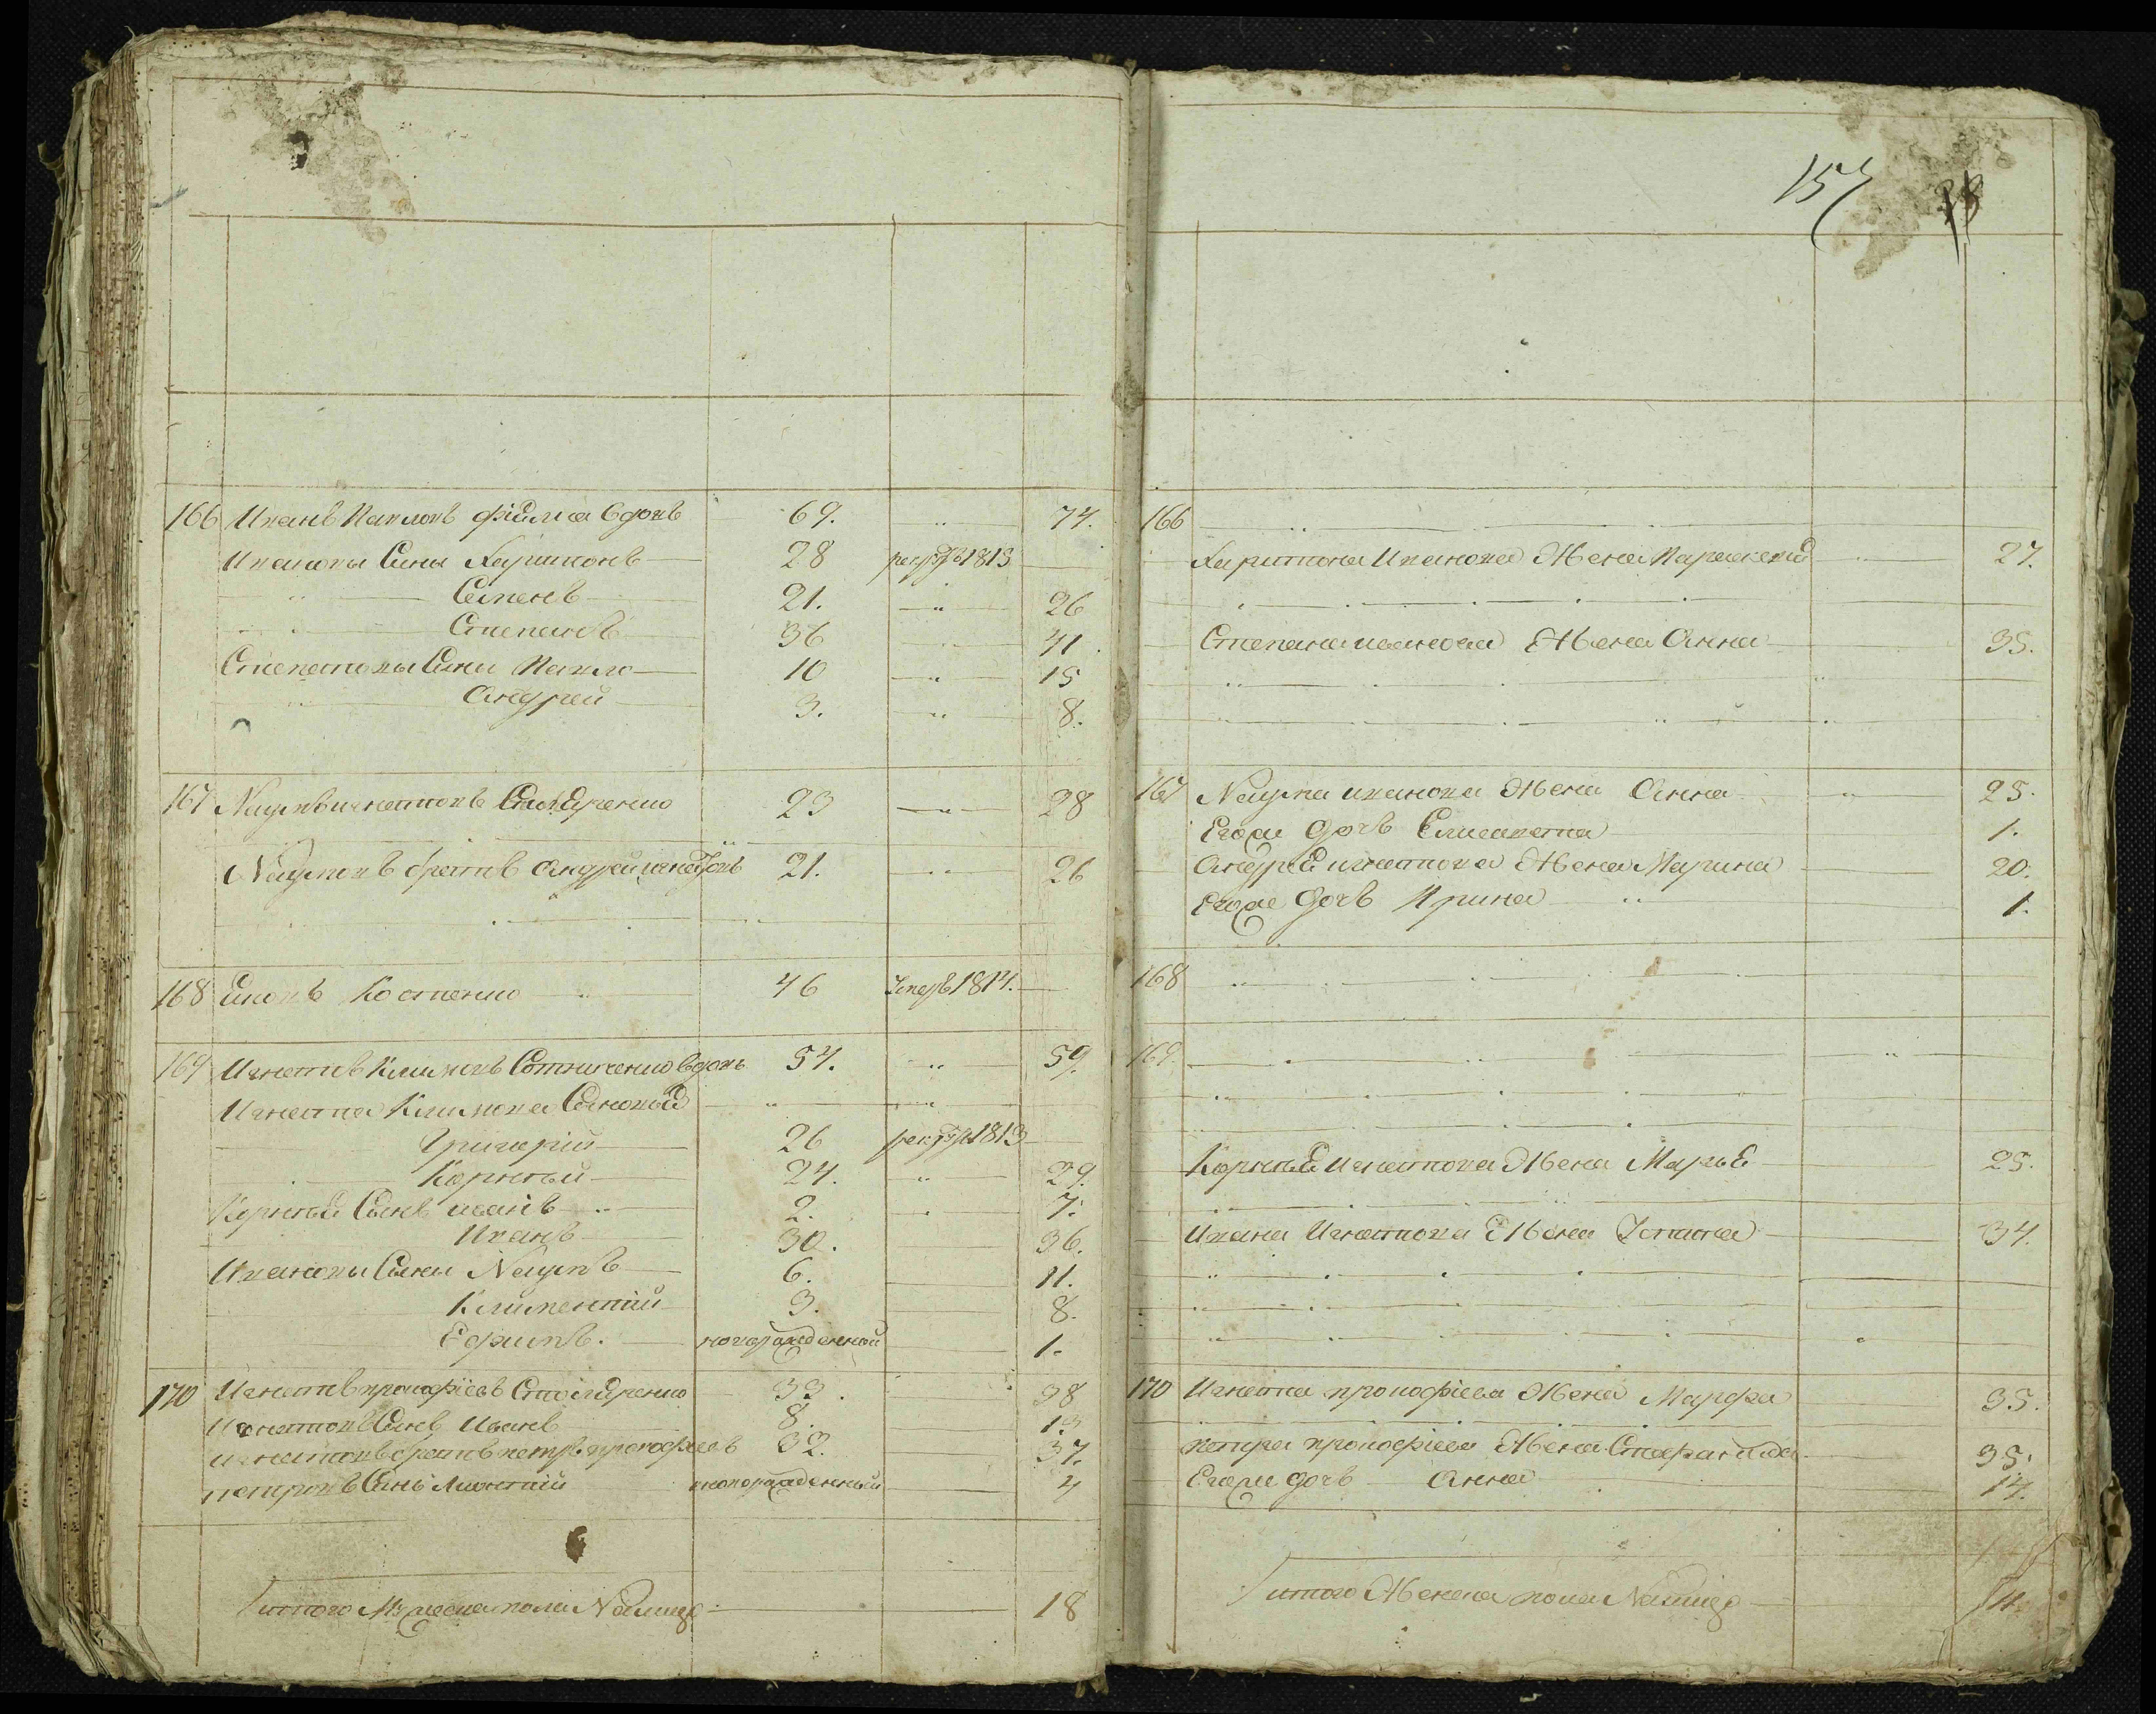 166 Иванъ Павловъ вдовъ 69. 74.
Ивановы Сины Харитонъ 28 рекрутъ 1813
Семенъ 21. 26
Степанъ 36 41.
Степановы Сини Павло 10 15
Андрей 3. 8.
167 Наумъ Игнатовъ 23 28
Наумовъ братъ андрей игнатовъ 21. 26
168 Костенко 46 умеръ 1814.
169 Игнатъ Климовъ Сотниченко вдовъ 54. 59.
Игната Климова Синовья
Григорій 26 рекрутъ 1813
Корнѣй 24. 29.
Корнѣй Синъ иванъ 2. 7.
Иванъ 30. 36.
Ивановы Сини Наумъ 6. 11.
Климентий 3. 8.
Ефимъ. новорожденный 1.
170 Игнатъ прокофіевъ 33. 38
Игнатовъ Синъ Иванъ 8. 13
игнатовъ братъ петръ прокофіевъ 32. 37.
петровъ Синъ Леонтий новорожденный 4
итого Мужеска пола Налицо 18
157
166
Харитона Иванова Жена Параскевия 27.
Степана иванова Жена Анна 35.
167 Наума иванова Жена Анна 25.
Егоже дочь Елисавета 1.
Андрея игнатова Жена Марина 20.
Егоже дочь Ирина 1.
168
169.
Корнѣя Игнатова Жена Марья 25.
Ивана Игнатова Жена 34.
170 Игната прокофіева Жена Марфа 35.
петра прокофіева Жена Стефанида 35.
Егоже дочь Анна 14.
итого Женска пола Налицо 11.